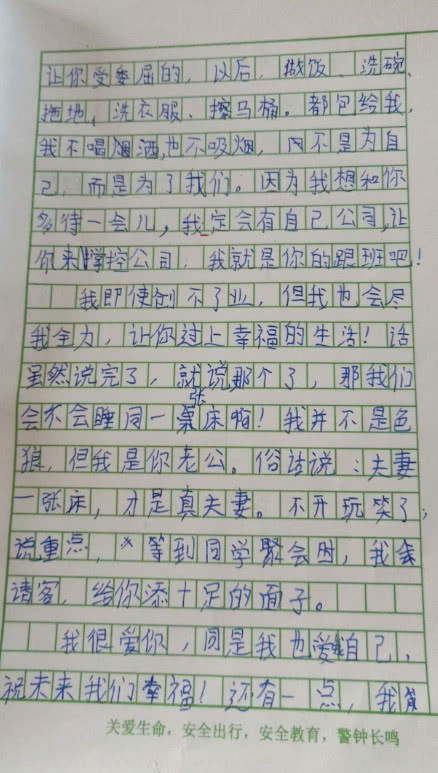 让你受委屈的，以后，做饭、洗碗、
拖地、洗衣服、擦马桶。都包给我，
我不喝烟酒，也不吸烟，因不是为自
己，而是为了我们。因为我想和你
多待一会儿，我定会有自己公司，让
你来掌控公司，我就是你的跟班吧！
我即使创不了业，但我也会尽
我全力，让你过上幸福的生活！话
虽然说完了，就说那个了，那我们
会不会睡同一张床啊！我并不是色
狼，但我是你老公。俗话说：夫妻
一张床，才是真夫妻。不开玩笑了；
说重点，等到同学聚会时，我会
请客，给你添十足的面子。
我很爱你，同是我也爱自己，
祝未来我们幸福！还有一点，我
关爱生命，安全出行，安全教育，警钟长鸣